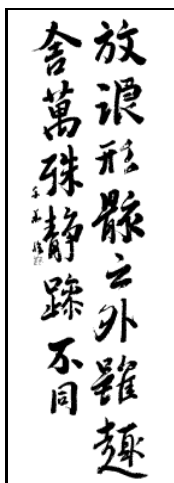 放浪形骸之外雖趣
舍萬殊靜躁不同